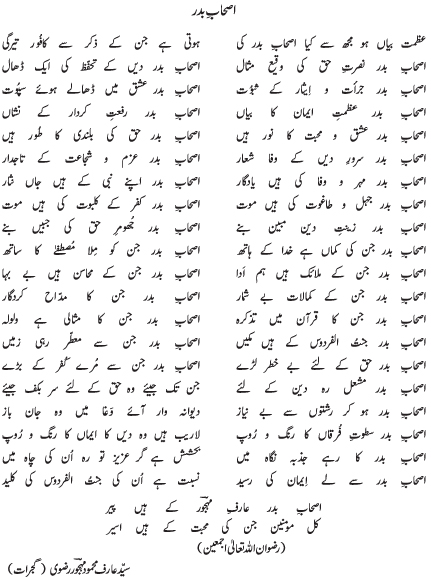 اصحابِ بدر
عظمت بیاں ہو مجھ سے کیا اصحابِ بدر کی ہوتی ہے جن کے ذکر سے کافُور تیرگی
اصحابِ بدر نصرتِ حق کی وقیع مثال اصحابِ بدر دیں کے تحفظ کی ایک ڈھال
اصحابِ بدر جرأت و ایثار کے ثبوت اصحابِ بدر عشق میں ڈھالے ہوئے سپُوت
اصحابِ بدر عظمتِ ایمان کا بیاں اصحابِ بدر رفعتِ کردار کے نشاں
اصحابِ بدر عشق و محبت کا نور ہیں اصحابِ بدر حق کی بلندی کا طور ہیں
اصحابِ بدر سرورِ دیں کے وفا شعار اصحابِ بدر عزم و شجاعت کے تاجدار
اصحابِ بدر مہر و وفا کی ہیں یادگار اصحابِ بدر اپنے نبی کے ہیں جاں نثار
اصحابِ بدر جہل و طاغوت کی ہیں موت اصحابِ بدر کفر کے کلبوت کی ہیں موت
اصحابِ بدر زینتِ دین مبین بنے اصحابِ بدر جُھومرِ حق کی جبیں بنے
اصحابِ بدر جن کی کماں ہے خدا کے ہاتھ اصحابِ بدر جن کو مِلا مُصطفےٰ کا ساتھ
اصحابِ بدر جن کے ملائک ہیں ہم اَدا اصحابِ بدر جن کے محاسن ہیں بے بہا
اصحابِ بدر جن کے کمالات بے شمار اصحابِ بدر جن کا مدّاح کردگار
اصحابِ بدر جن کا قرآن میں تذکرہ اصحابِ بدر جن کا مثالی ہے ولولہ
اصحابِ بدر جنتُ الفردوس کے ہیں مکیں اصحابِ بدر جن سے معطّر رہی زمیں
اصحابِ بدر حق کے لئے بے خطر لڑے اصحابِ بدر جن سے مُرے کُفر کے بڑے
اصحابِ بدر مشعلِ رہ دین کے لئے جن تک جیئے وہ حق کے لئے سر بکف جیئے
اصحابِ بدر ہو کر رشتوں سے بے نیاز دیوانہ وار آئے وَغا میں وہ جان باز
اصحابِ بدر سطوتِ فُرقاں کا رنگ و رُوپ لاریب ہیں وہ دیں کا ایماں کا رنگ و رُوپ
اصحابِ بدر کا رہے جذبہ نگاہ میں بخشش ہے گر عزیز تو رہ اُن کی چاہ میں
اصحابِ بدر سے لے ایمان کی رسید نسبت ہے اُن کی جنتُ الفردوس کی کلید
اصحابِ بدر عارفِ مہجورؔ کے ہیں پیر
کُل مومنین جن کی محبت کے ہیں اسیر
(رضوان اللہ تعالیٰ اجمعین)
سیّد عارف محمود مہجورؔ رضوی (گجرات)